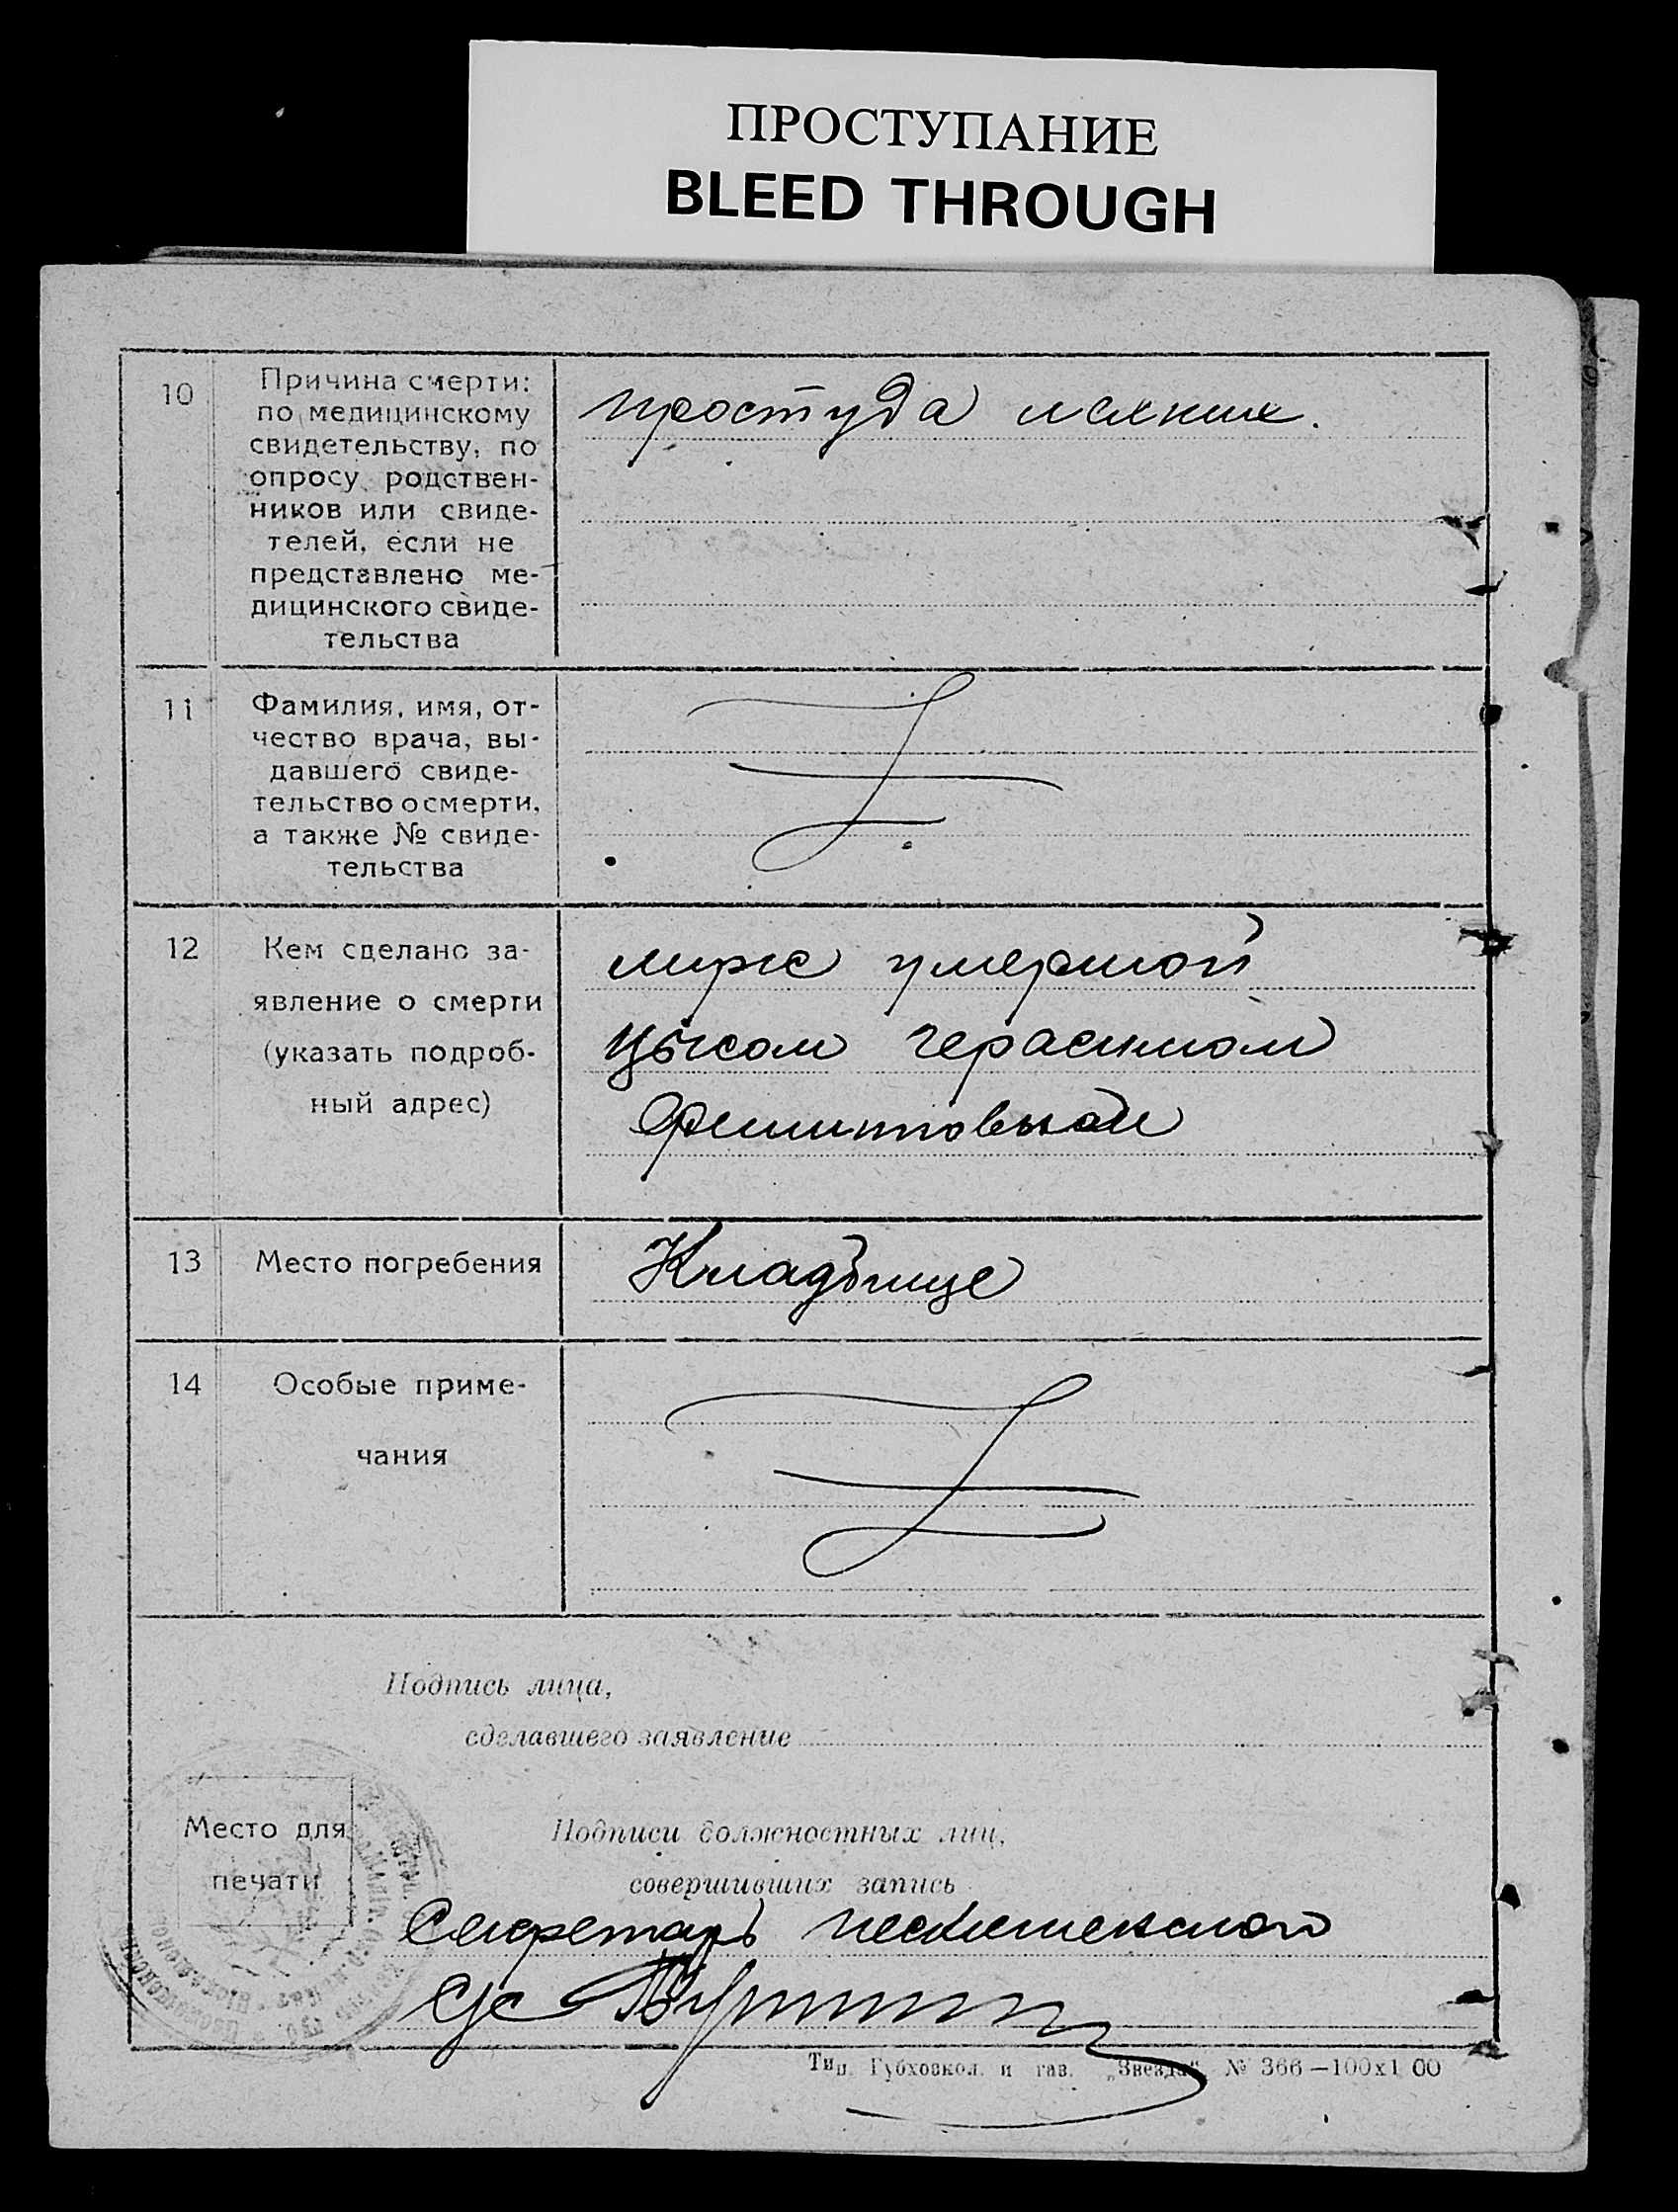 ПРОСТУПАНИЕ
BLEED THROUGH
10
Причина смерти:
по медицинскому
свидетельству, по
опросу родствен-
ников или свиде-
телей, если не
представлено ме-
дицинского свиде-
тельства
простуда лехких.
11
Фамилия, имя, от-
чество врача, вы-
давшего свиде-
тельство о смерти,
а также № свиде-
тельства
12
Кем сделано за-
явление о смерти
(указать подроб-
ный адрес)
умершой
герасимом
13
Место погребения
Кладбище
14
Особые приме-
чания
Подпись лица,
сделавшего заявление
Место для
печати
Подписи должностных лиц,
совершивших запись
Секретарь
с/с
Тип. Губхозкол. и газ. „Звезда“ № 366—100х1 00